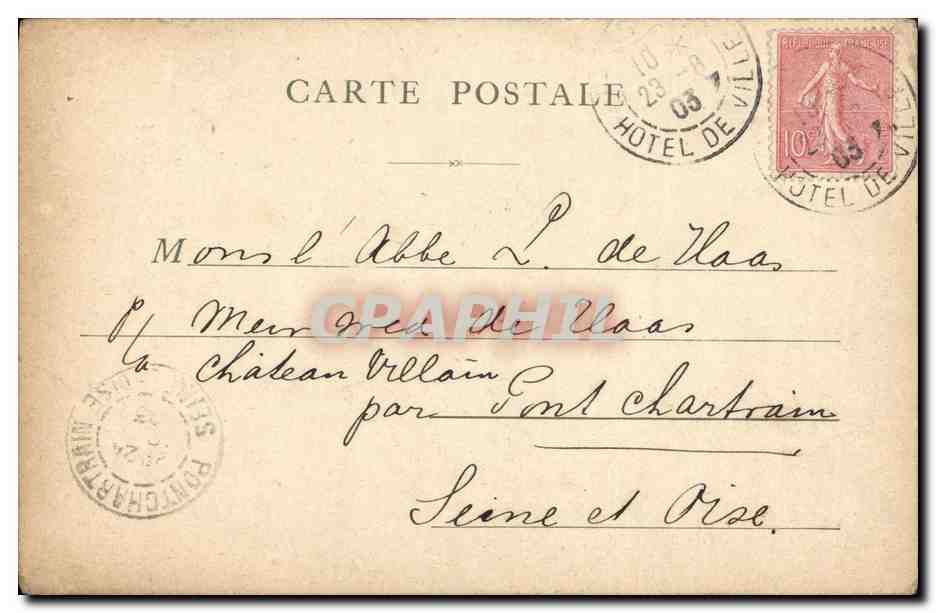 CARTE POSTALE
10
23 -8
03
HOTEL DE VILLE
REPUBLIQUE FRANÇAISE
10c
03
HOTEL DE VILLE
Mons l'Abbe L. de Haas
CPAPHIL
P/ Meur wed de Haas
a Chateau Villain
par Pont Chartrain
Seine et Oise.
PONTCHARTRAIN SEINE-ET-OISE